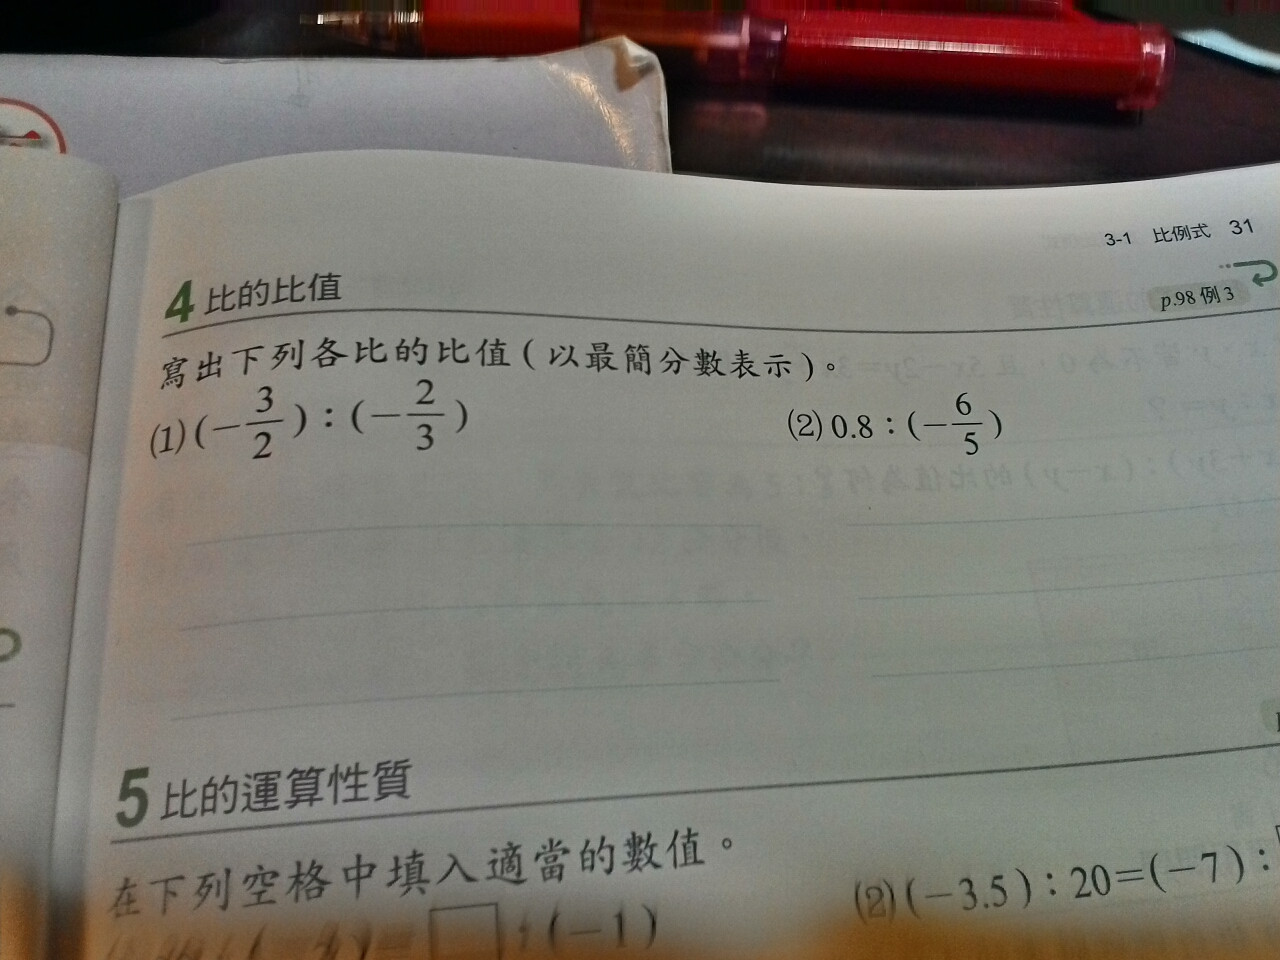 3-1 比例式 31
4 比的比值
p.98 例 3
寫出下列各比的比值(以最簡分數表示)。
(1) (-3/2) : (-2/3)
(2) 0.8 : (-6/5)
5 比的運算性質
在下列空格中填入適當的數值。
(2) (-3.5) : 20=(-7) :
=□ : (-1)